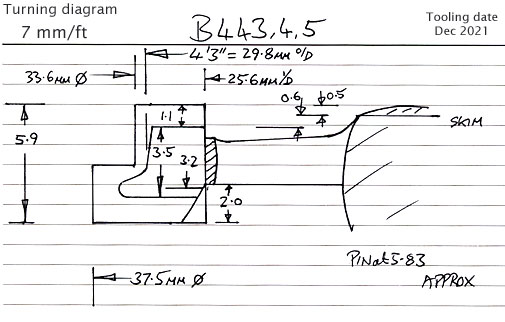 Turning diagram
7 mm/ft
B443,4,5
Tooling date
Dec 2021
4'3" = 29.8mm O/D
33.6mm Ø
25.6mm I/D
0.6
0.5
1.1
SKIM
5.9
3.5
3.2
2.0
PIN at 5.83
APPROX
37.5mm Ø